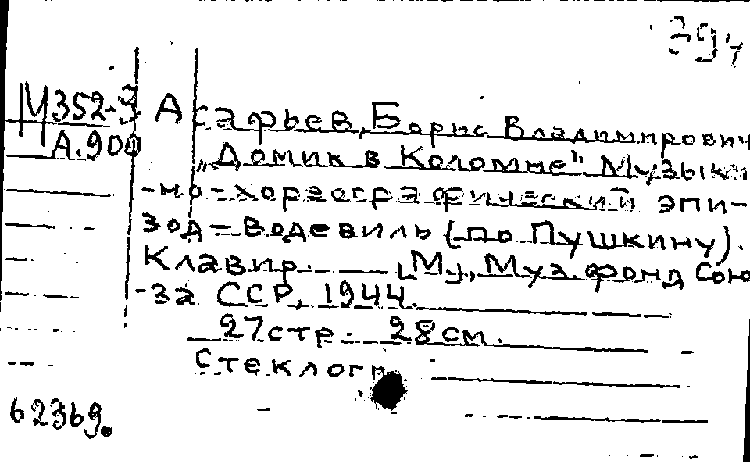 394
М352-3 Асафьев, Борис Владимирович
А.900 „Домик в Коломне" Музыкаль
-но-хореографический эпи-
зод-водевиль (по Пушкину).
Клавир. — [М], Муз. фонд Сою
-за ССР, 1944.
27 стр. 28 см.
Стеклогр
62369.